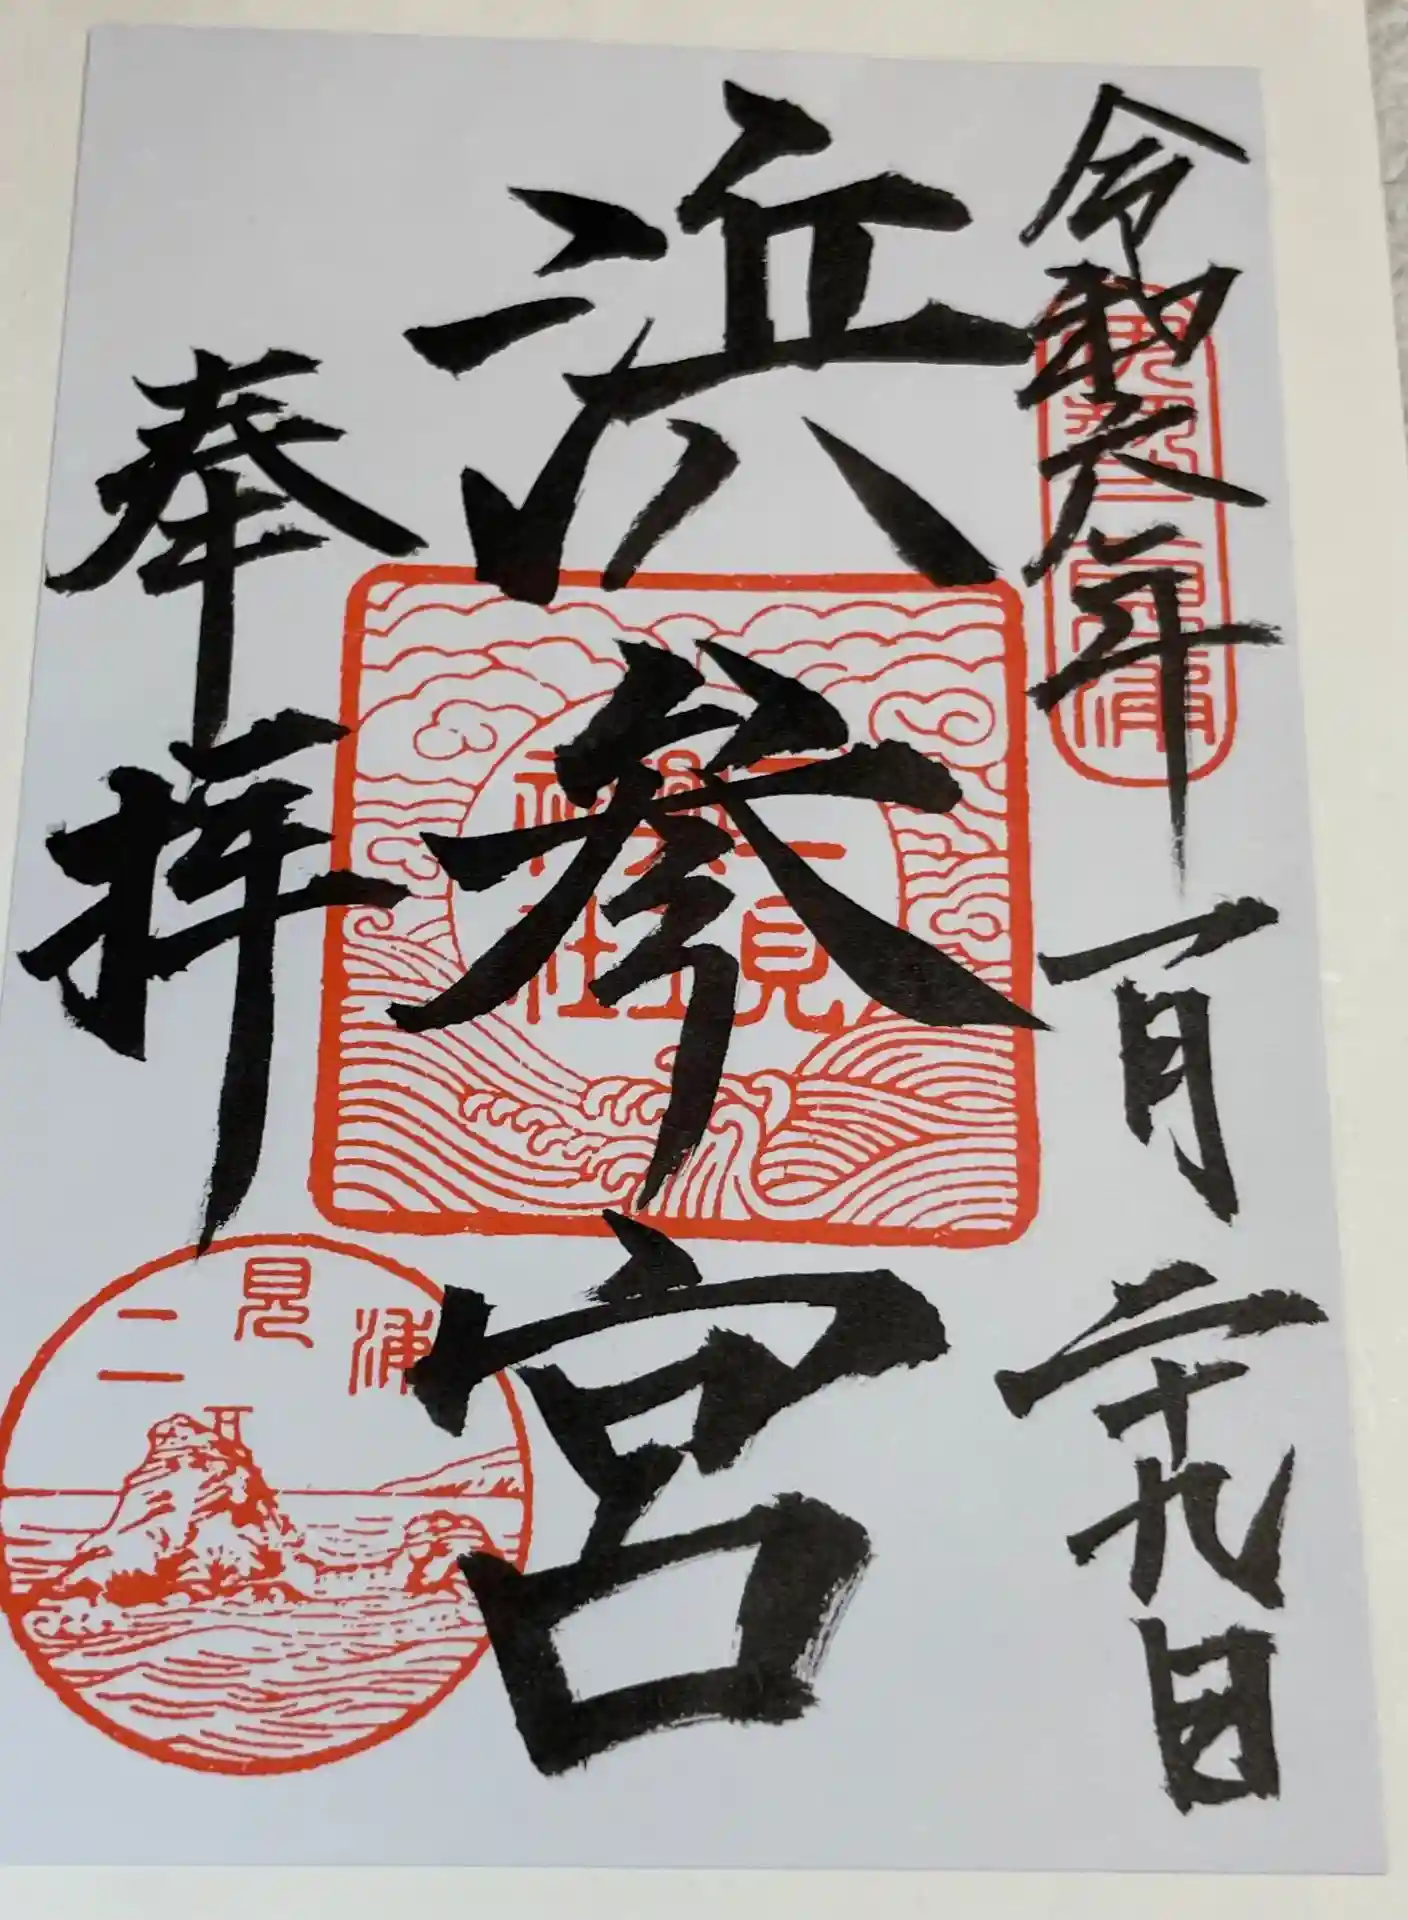 令和六年一月二十九日
伊勢二見浦
浜参宮
二見興玉神社
奉拝
二見浦